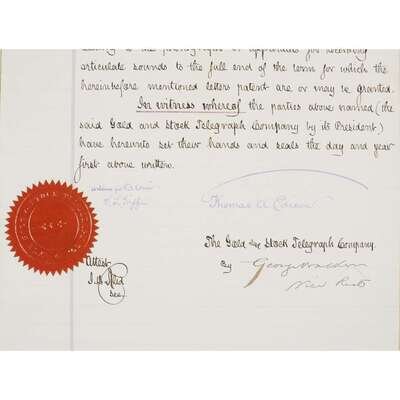 articulate sounds to the full end of the term for which the
hereinbefore mentioned letters patent are or may be granted.
In witness whereof the parties above named (the
said Gold and Stock Telegraph Company by its President)
have hereunto set their hands and seals the day and year
first above written.
Thomas A Edison
The Gold and Stock Telegraph Company.
By George Walker
Vice Prest
Attest
Sec.